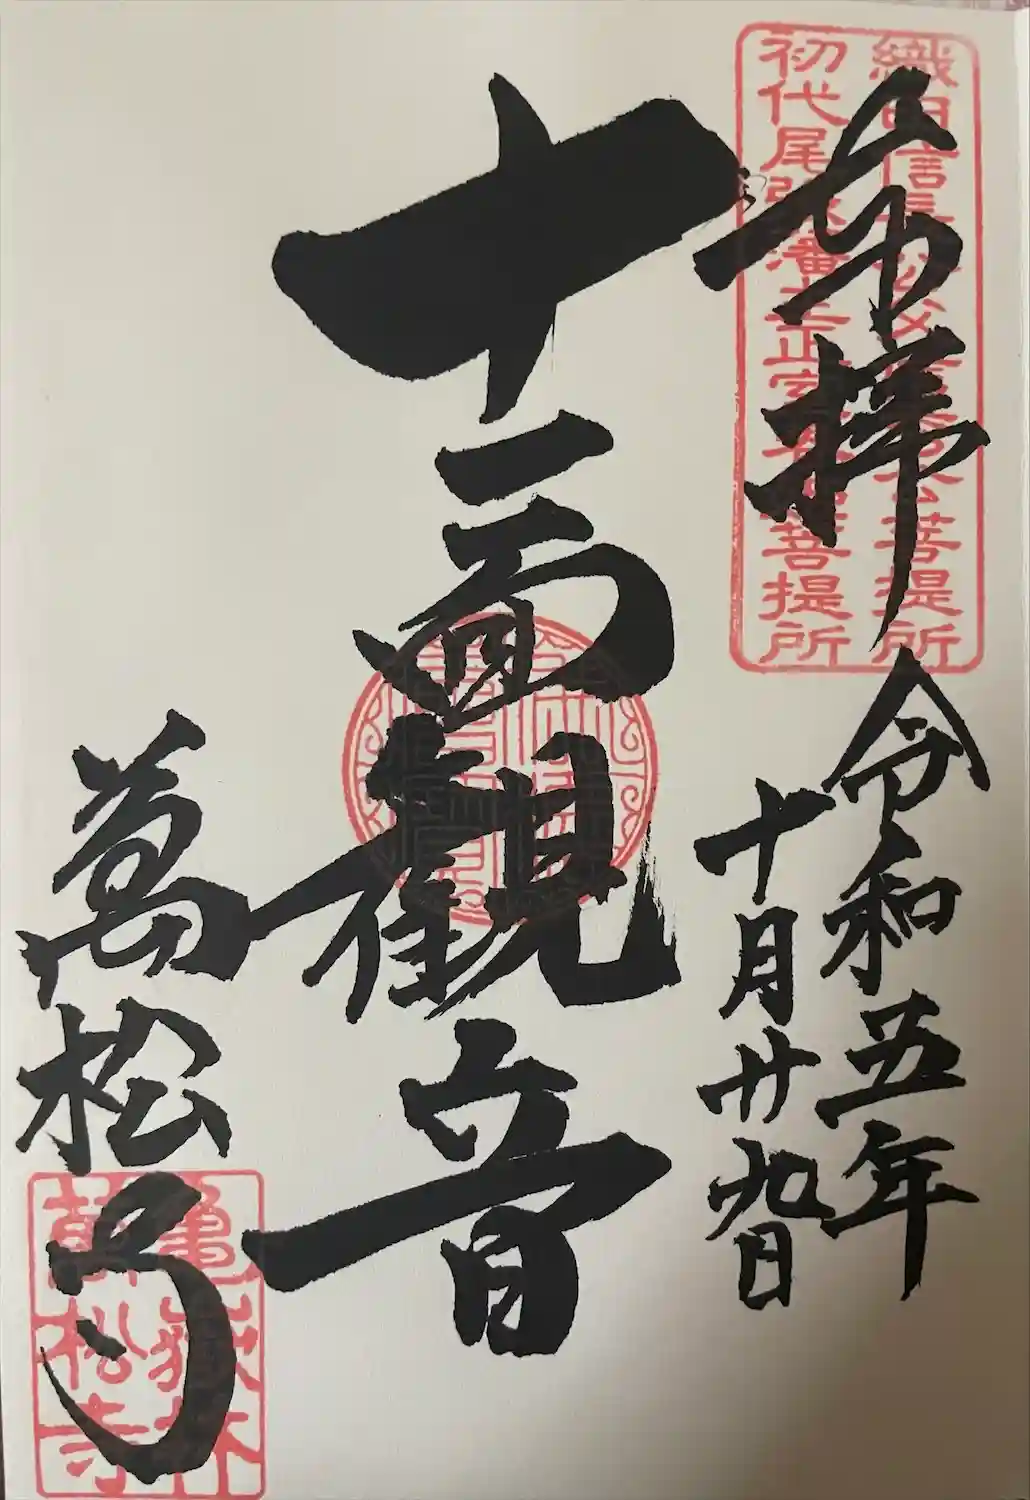 奉拝
令和五年
十月廿九日
十一面観音
萬松寺
織田信長公父信秀公菩提所
初代尾張藩主正室春姫菩提所
亀嶽林
萬松寺